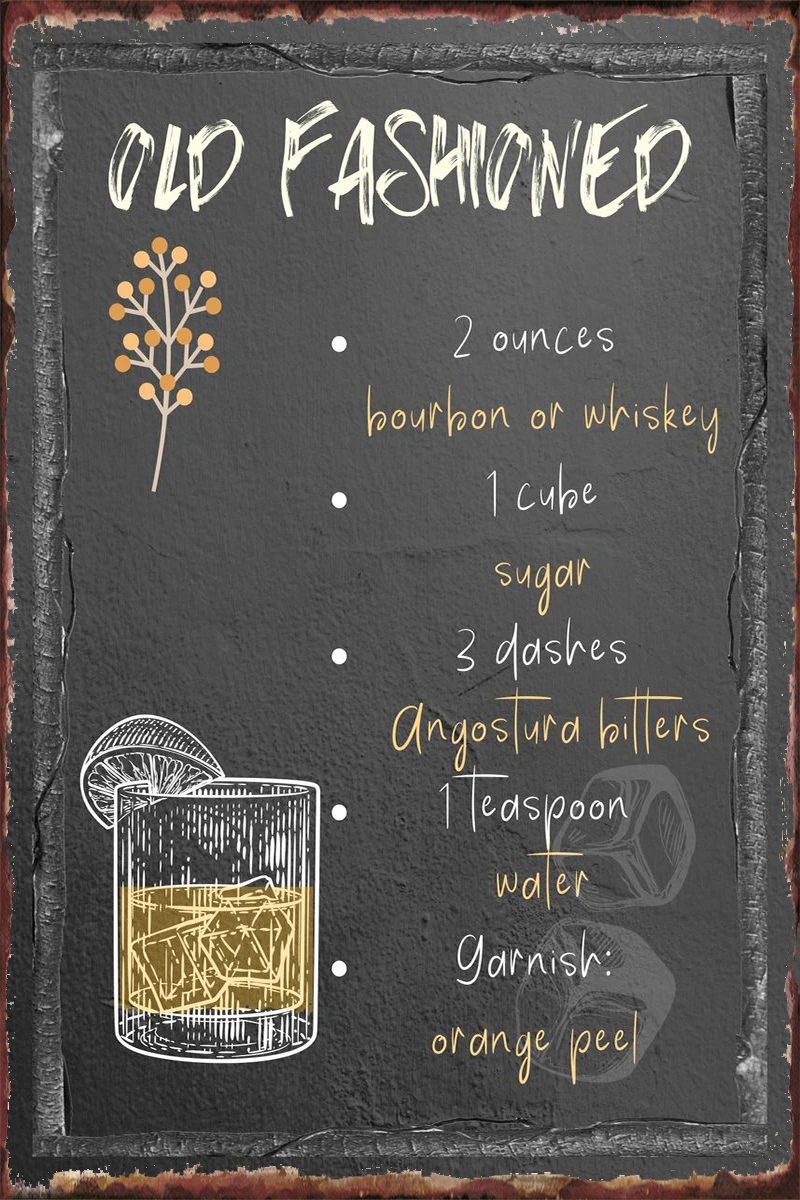 OLD FASHIONED
2 ounces
bourbon or whiskey
1 cube
sugar
3 dashes
Angostura bitters
1 Teaspoon
water
Garnish:
orange peel